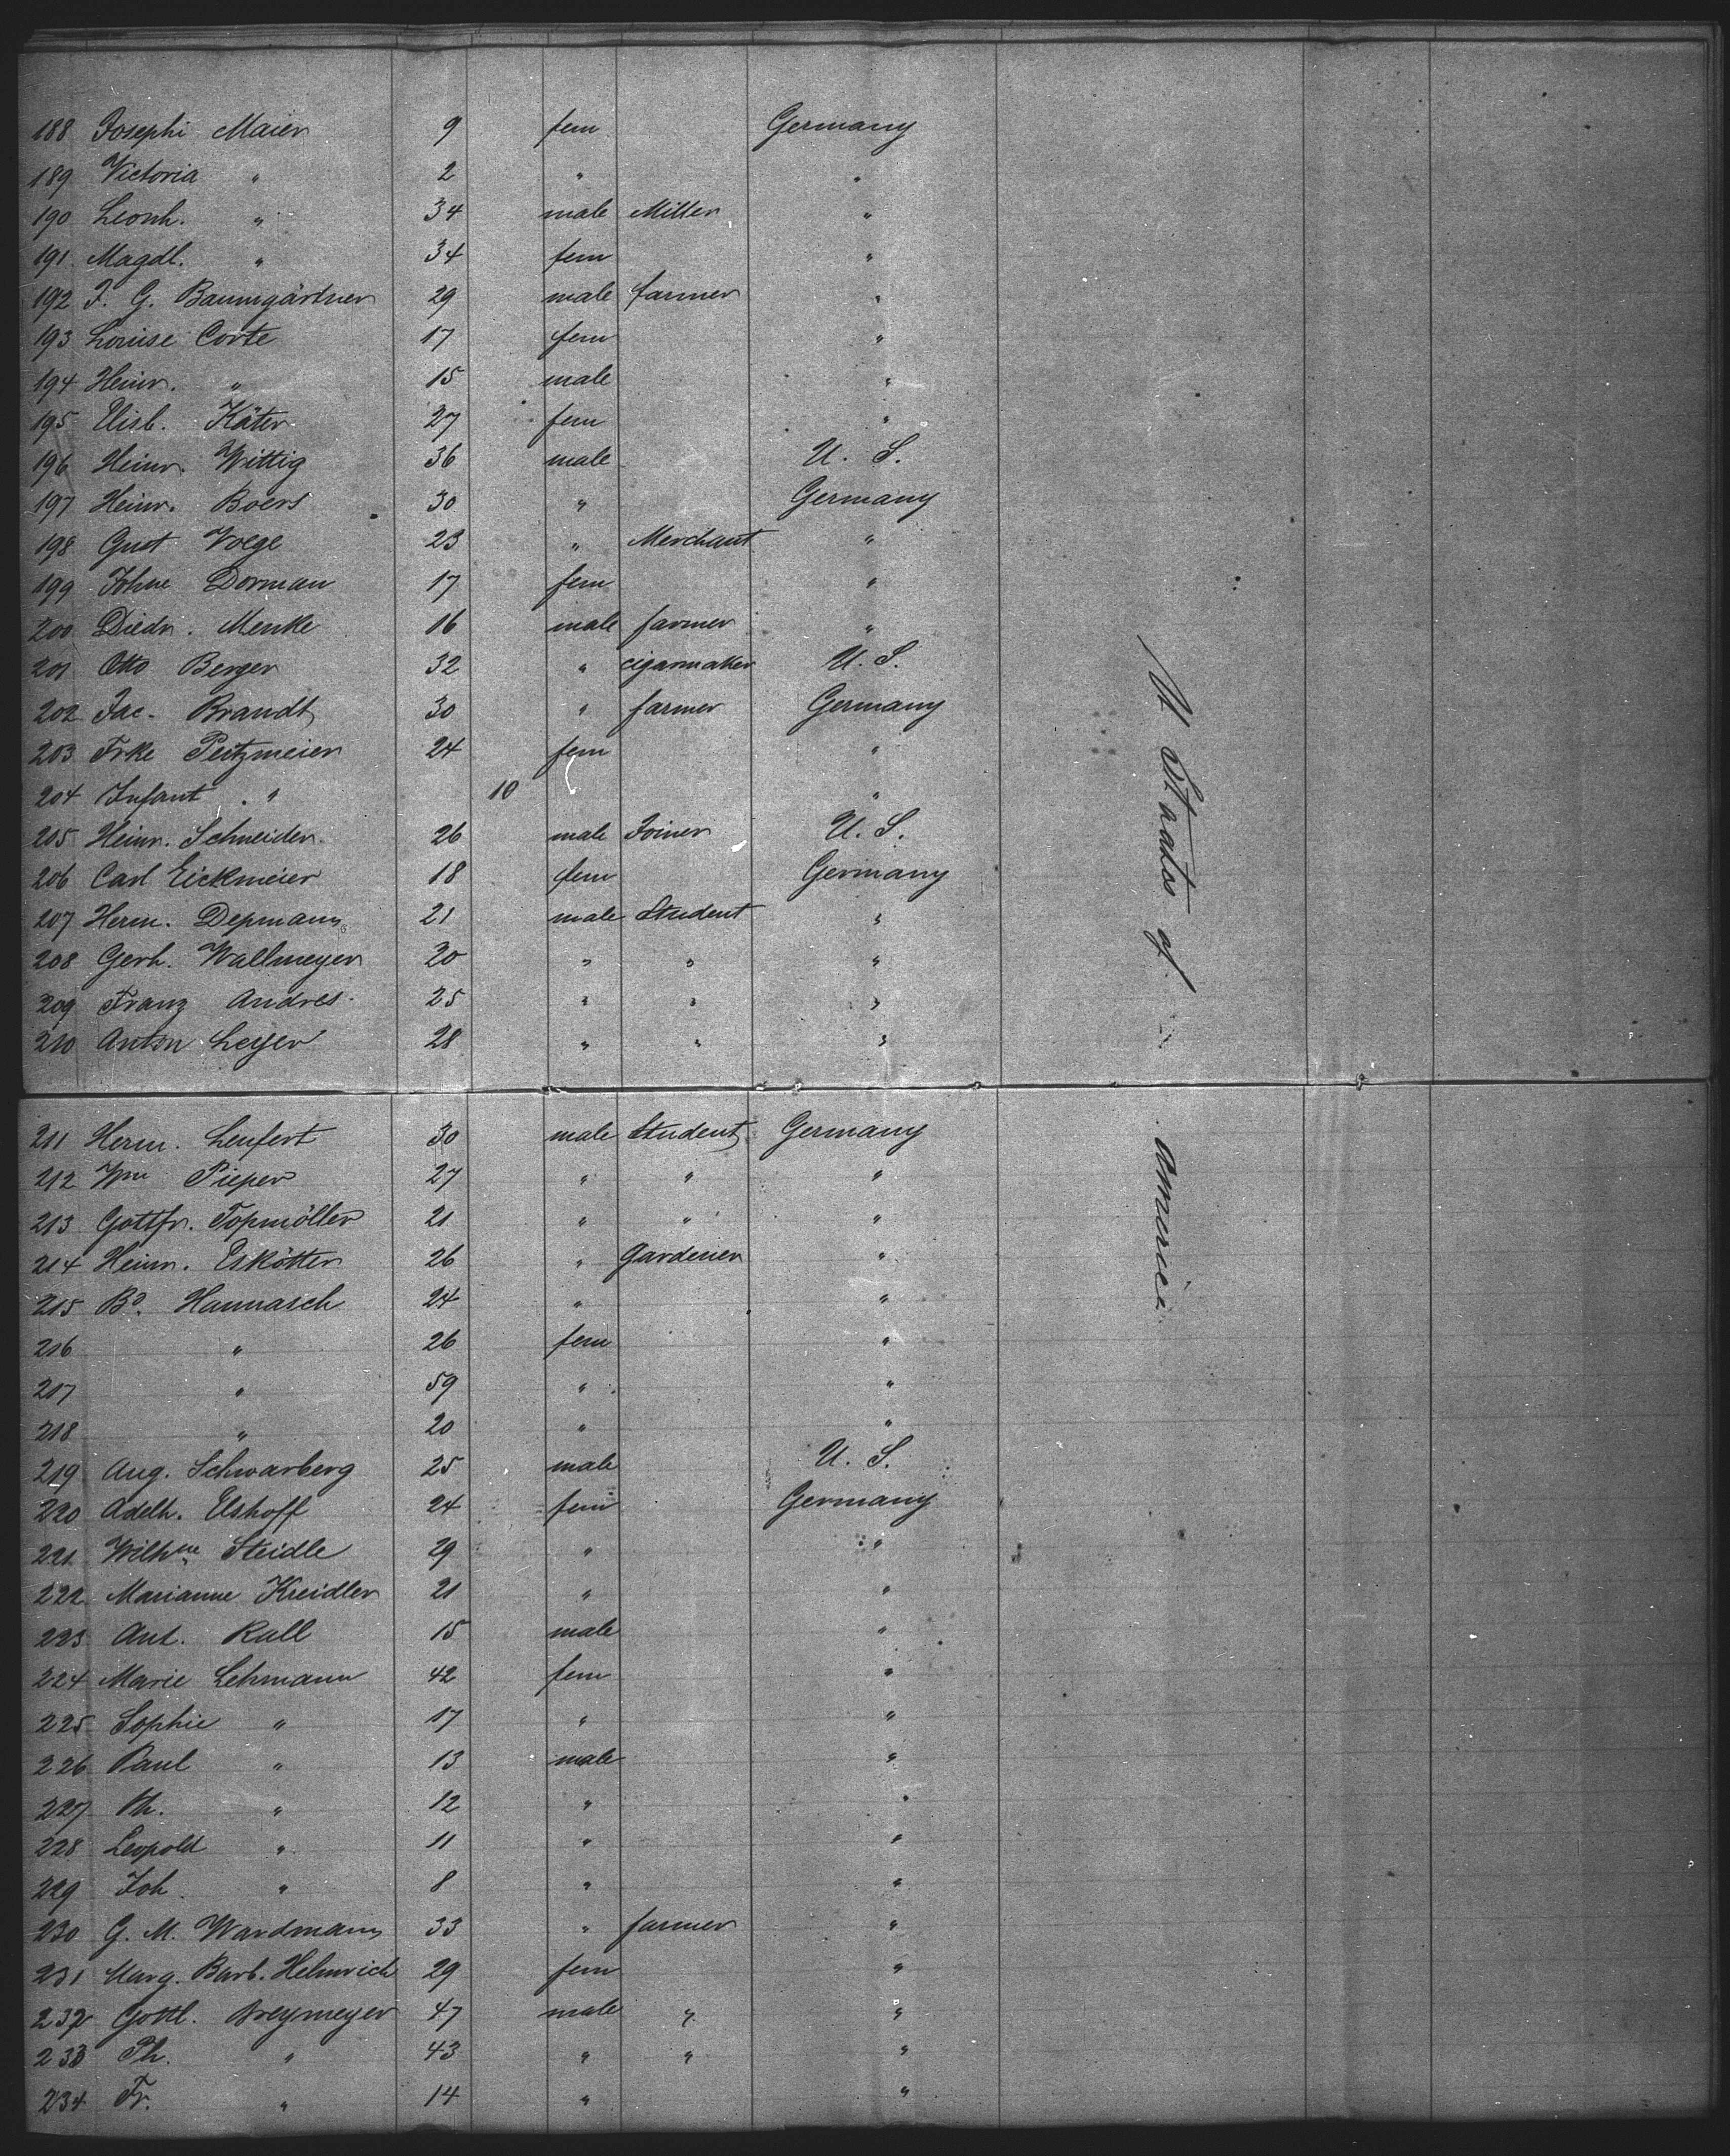 188 Josephi Maier 9 fem Germany
189 Victoria " 2 " "
190 Leonh. " 34 male Miller "
191 Magdl. " 34 fem "
192 J. G. Baumgärtner 29 male farmer "
193 Louise Corte 17 fem "
194 Heinr. " 15 male "
195 Elisb. Käter 27 fem "
196 Heinr. Wittig 36 male U. S.
197 Heinr. Boers 30 " Germany
198 Gust Voege 23 " Merchant "
199 Johne Dorman 17 fem "
200 Diedr. Menke 16 male farmer "
201 Otto Berger 32 " cigarmaker U. S.
202 Jac. Brandt 30 " farmer Germany
203 Frke Peitzmeier 24 fem "
204 Infant " 10 "
205 Heinr. Schneider 26 male Joiner U. S.
206 Carl Eickmeier 18 fem Germany
207 Herm. Depmann 21 male Student "
208 Gerh. Wallmeyer 20 " " "
209 Franz Andres 25 " " "
210 Anton Leyer 28 " " "
211 Herm. Lenfert 30 male Student Germany
212 Wm Pieper 27 " " "
213 Gottfr. Topmöller 21 " " "
214 Heinr. Eskötter 26 " Gardener "
215 Bd. Hannasch 24 " "
216 " 26 fem "
217 " 59 " "
218 " 20 " "
219 Aug. Schwarberg 25 male U. S.
220 Adelh. Elshoff 24 fem Germany
221 Wilhne Steidle 29 " "
222 Marianne Kreidler 21 " "
223 Ant. Rall 15 male "
224 Marie Lehmann 42 fem "
225 Sophie " 17 " "
226 Paul " 13 male "
227 Th. " 12 " "
228 Leopold " 11 " "
229 Joh " 8 " "
230 G. M. Wardmann 33 " farmer "
231 Marg. Barb. Helmrich 29 fem "
232 Gottl. Breymeyer 47 male " "
233 Ph. " 43 " " "
234 Fr. " 14 " "
U Staates of America